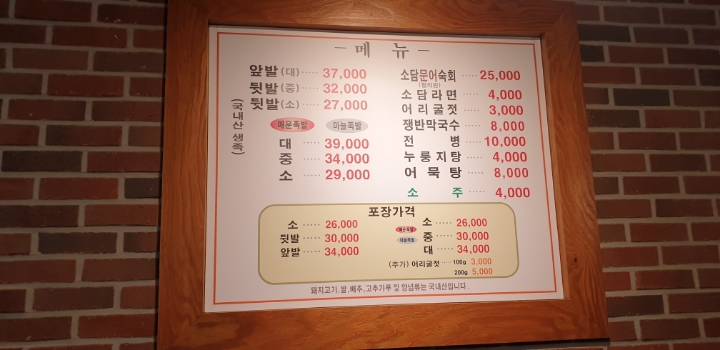 - 메 뉴 -
앞발 (대) ····· 37,000
뒷발 (중) ····· 32,000
뒷발 (소) ····· 27,000
(국내산 생족)
매운족발 마늘족발
대 ····· 39,000
중 ····· 34,000
소 ····· 29,000
소담문어숙회 ····· 25,000
소담라면 ····· 4,000
어리굴젓 ····· 3,000
쟁반막국수 ····· 8,000
전 병 ····· 10,000
누룽지탕 ····· 4,000
어묵탕 ····· 8,000
소 주 ····· 4,000
포장가격
소 ····· 26,000
뒷발 ····· 30,000
앞발 ····· 34,000
매운족발
마늘족발
소 ····· 26,000
중 ····· 30,000
대 ····· 34,000
(추가) 어리굴젓 ····· 100g 3,000
200g 5,000
돼지고기, 쌀, 배추, 고추가루 및 양념류는 국내산입니다.